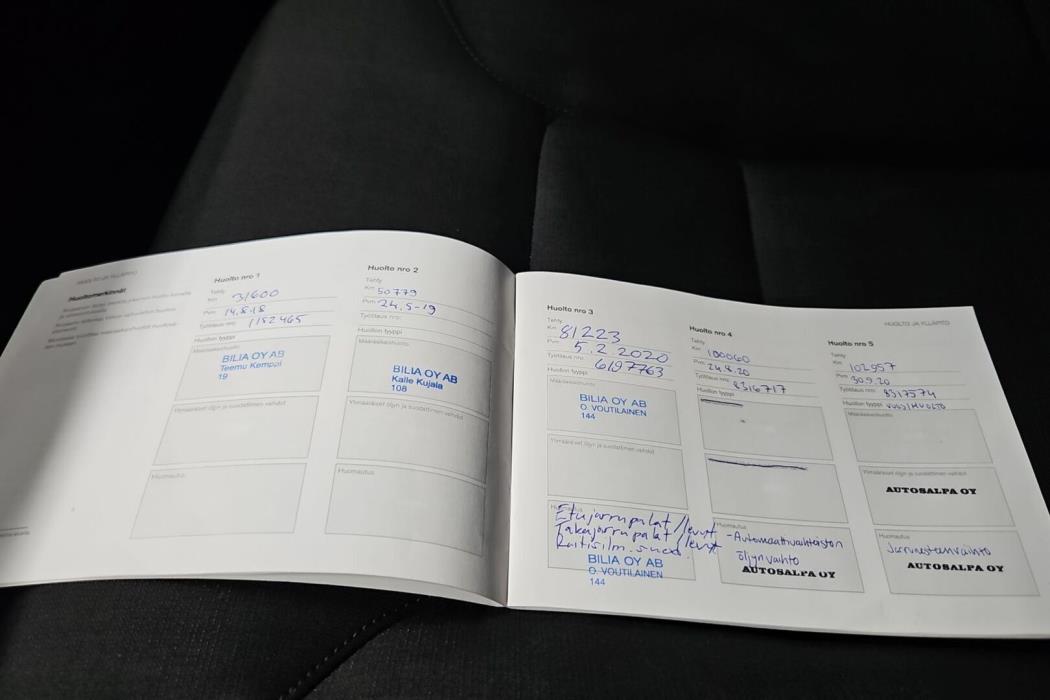 HUOLTO JA YLLÄPITO
Huoltomerkinnät
Huolto nro 1
Tehty
Km 31600
Pvm 14.8.18
Työtilaus nro: 1152465
Huollon tyyppi
Määräaikaishuolto
BILIA OY AB
Teemu Kemppi
19
Ylimääräiset öljyn ja suodattimen vaihdot
Huomautus
Huolto nro 2
Tehty
Km 50779
Pvm 24.5-19
Työtilaus nro:
Huollon tyyppi
Määräaikaishuolto
BILIA OY AB
Kalle Kujala
108
Ylimääräiset öljyn ja suodattimen vaihdot
Huomautus
Huolto nro 3
Tehty
Km 81223
Pvm 5.2.2020
Työtilaus nro: 6197763
Huollon tyyppi
Määräaikaishuolto
BILIA OY AB
O. VOUTILAINEN
144
Ylimääräiset öljyn ja suodattimen vaihdot
Etujarrupalat/levyt
Takajarrupalat/levyt
Raitisilm.suod.
BILIA OY AB
O. VOUTILAINEN
144
Huolto nro 4
Tehty
Km 100060
Pvm 24.8.20
Työtilaus nro: 8316717
Huollon tyyppi
Huomautus
-Automaattivaihteiston
öljynvaihto
AUTOSALPA OY
HUOLTO JA YLLÄPITO
Huolto nro 5
Tehty
Km 102957
Pvm 30.9.20
Työtilaus nro: 8317574
Huollon tyyppi VUOSIHUOLTO
Määräaikaishuolto
Ylimääräiset öljyn ja suodattimen vaihdot
AUTOSALPA OY
Huomautus
Jarrunesteenvaihto
AUTOSALPA OY